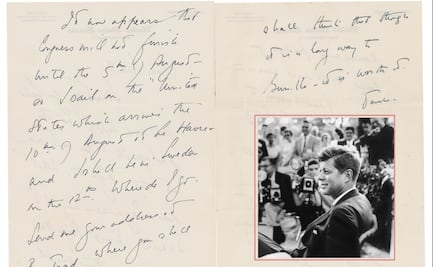 It now appears that
Congress will not finish
until the 5th of August -
so I sail on the "United
States" which arrives the
10th of August at Le Havre -
and I shall be in Sweden
on the 12th. Where do I go.
Send me your address at
where you shall
shall think that though
it is a long way to
- it is worth it